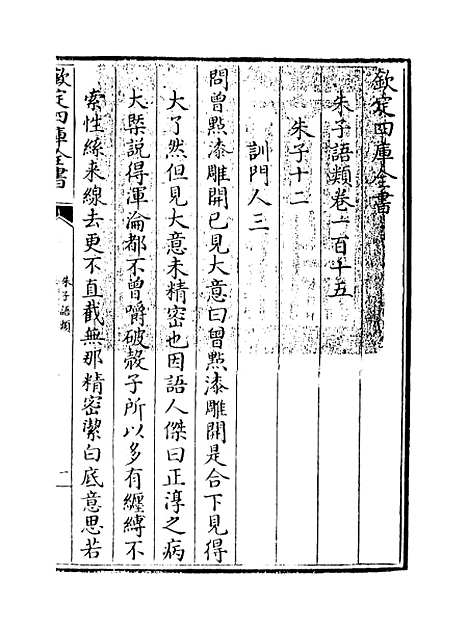 欽定四庫全書
朱子語類卷一百十五
朱子十二
訓門人三
問曾點漆雕開已見大意曰曾點漆雕開是合下見得
大了然但見大意未精密也因語人傑曰正淳之病
大槩說得渾淪都不曾嚼破殼子所以多有纏縛不
索性絲来線去更不直截無那精密潔白底意思若
欽定四庫全書
朱子語類